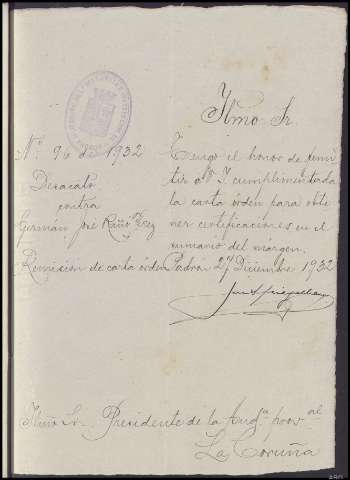 Ilmo Sr.
Nº 96 de 1932
Desacato
contra
German José Riño
Remisión de carta órden
Tengo el honor de remi-
tir a V. I. cumplimentada
la carta órden para obte
ner certificaciones en el
sumario del márgen.
Padrón 27 Diciembre 1932
Ilmo Sr. Presidente de la Audª provªal
La Coruña